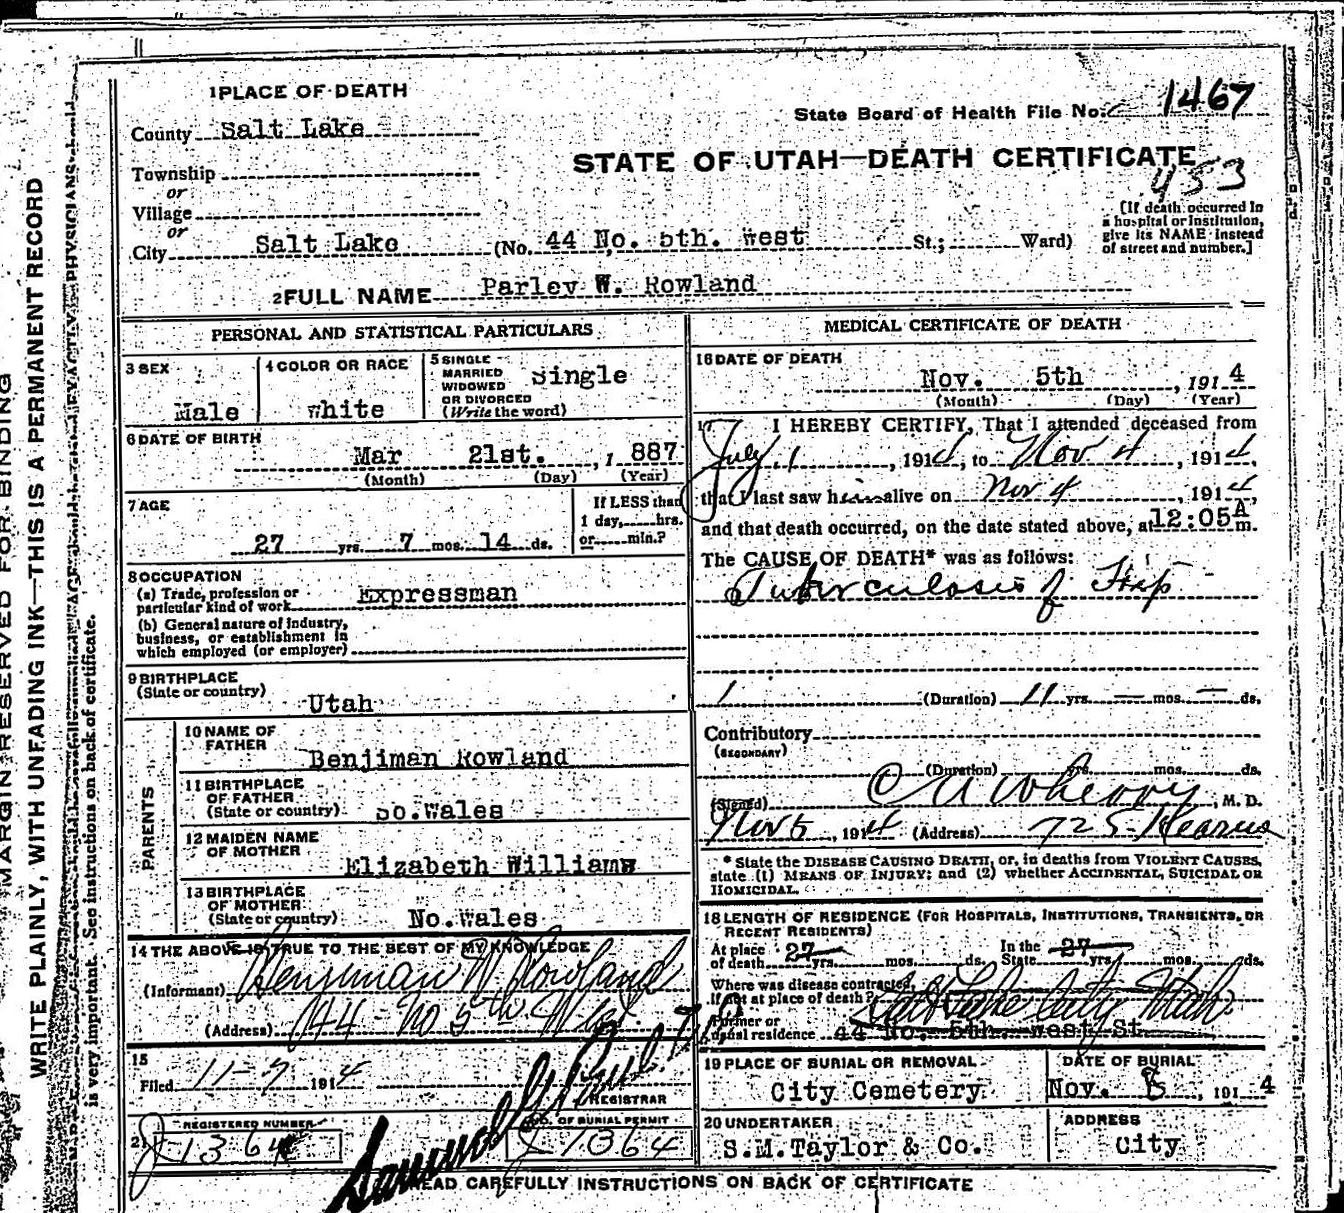 1 PLACE OF DEATH
County Salt Lake
Township
or
Village
or
City Salt Lake (No. 44 No. 5th. West St.; Ward)
State Board of Health File No. 1467
STATE OF UTAH—DEATH CERTIFICATE
453
[If death occurred in
a hospital or institution,
give its NAME instead
of street and number.]
2 FULL NAME Parley W. Rowland
PERSONAL AND STATISTICAL PARTICULARS
3 SEX
Male
4 COLOR OR RACE
White
5 SINGLE
MARRIED
WIDOWED
OR DIVORCED
(Write the word)
Single
6 DATE OF BIRTH
Mar 21st. , 1 887
(Month) (Day) (Year)
7 AGE
27 yrs. 7 mos. 14 ds.
If LESS than
1 day, hrs.
or min.?
8 OCCUPATION
(a) Trade, profession or
particular kind of work Expressman
(b) General nature of industry,
business, or establishment in
which employed (or employer)
9 BIRTHPLACE
(State or country)
Utah
PARENTS
10 NAME OF
FATHER
Benjiman Rowland
11 BIRTHPLACE
OF FATHER
(State or country) So.Wales
12 MAIDEN NAME
OF MOTHER
Elizabeth Williams
13 BIRTHPLACE
OF MOTHER
(State or country) No.Wales
14 THE ABOVE IS TRUE TO THE BEST OF MY KNOWLEDGE
(Informant) Benjiman W Rowland
(Address) 44 No 5th West
15
Filed 11-7 1914
REGISTRAR
REGISTERED NUMBER
J 1364
NO. OF BURIAL PERMIT
J 1364
MEDICAL CERTIFICATE OF DEATH
16 DATE OF DEATH
Nov. 5th , 191 4
(Month) (Day) (Year)
17 I HEREBY CERTIFY, That I attended deceased from
July 1 , 1914, to Nov 4 , 1914,
that I last saw him alive on Nov 4 , 1914,
and that death occurred, on the date stated above, at 12:05 A m.
The CAUSE OF DEATH* was as follows:
Tuberculosis of Hip
(Duration) 11 yrs. — mos. — ds.
Contributory
(SECONDARY)
(Duration) yrs. mos. ds.
(Signed) , M. D.
Nov 5 , 1914 (Address)
* State the DISEASE CAUSING DEATH, or, in deaths from VIOLENT CAUSES,
state (1) MEANS OF INJURY; and (2) whether ACCIDENTAL, SUICIDAL OR
HOMICIDAL.
18 LENGTH OF RESIDENCE (FOR HOSPITALS, INSTITUTIONS, TRANSIENTS, OR
RECENT RESIDENTS)
At place
of death 27 yrs. mos. ds.
In the
State 27 yrs. mos. ds.
Where was disease contracted,
If not at place of death? Salt Lake City Utah
Former or
usual residence 44 No. 5th. West St
19 PLACE OF BURIAL OR REMOVAL
City Cemetery
DATE OF BURIAL
Nov. 8 , 191 4
20 UNDERTAKER
S.M.Taylor & Co.
ADDRESS
City
READ CAREFULLY INSTRUCTIONS ON BACK OF CERTIFICATE
MARGIN RESERVED FOR BINDING
WRITE PLAINLY, WITH UNFADING INK—THIS IS A PERMANENT RECORD
is very important. See instructions on back of certificate.